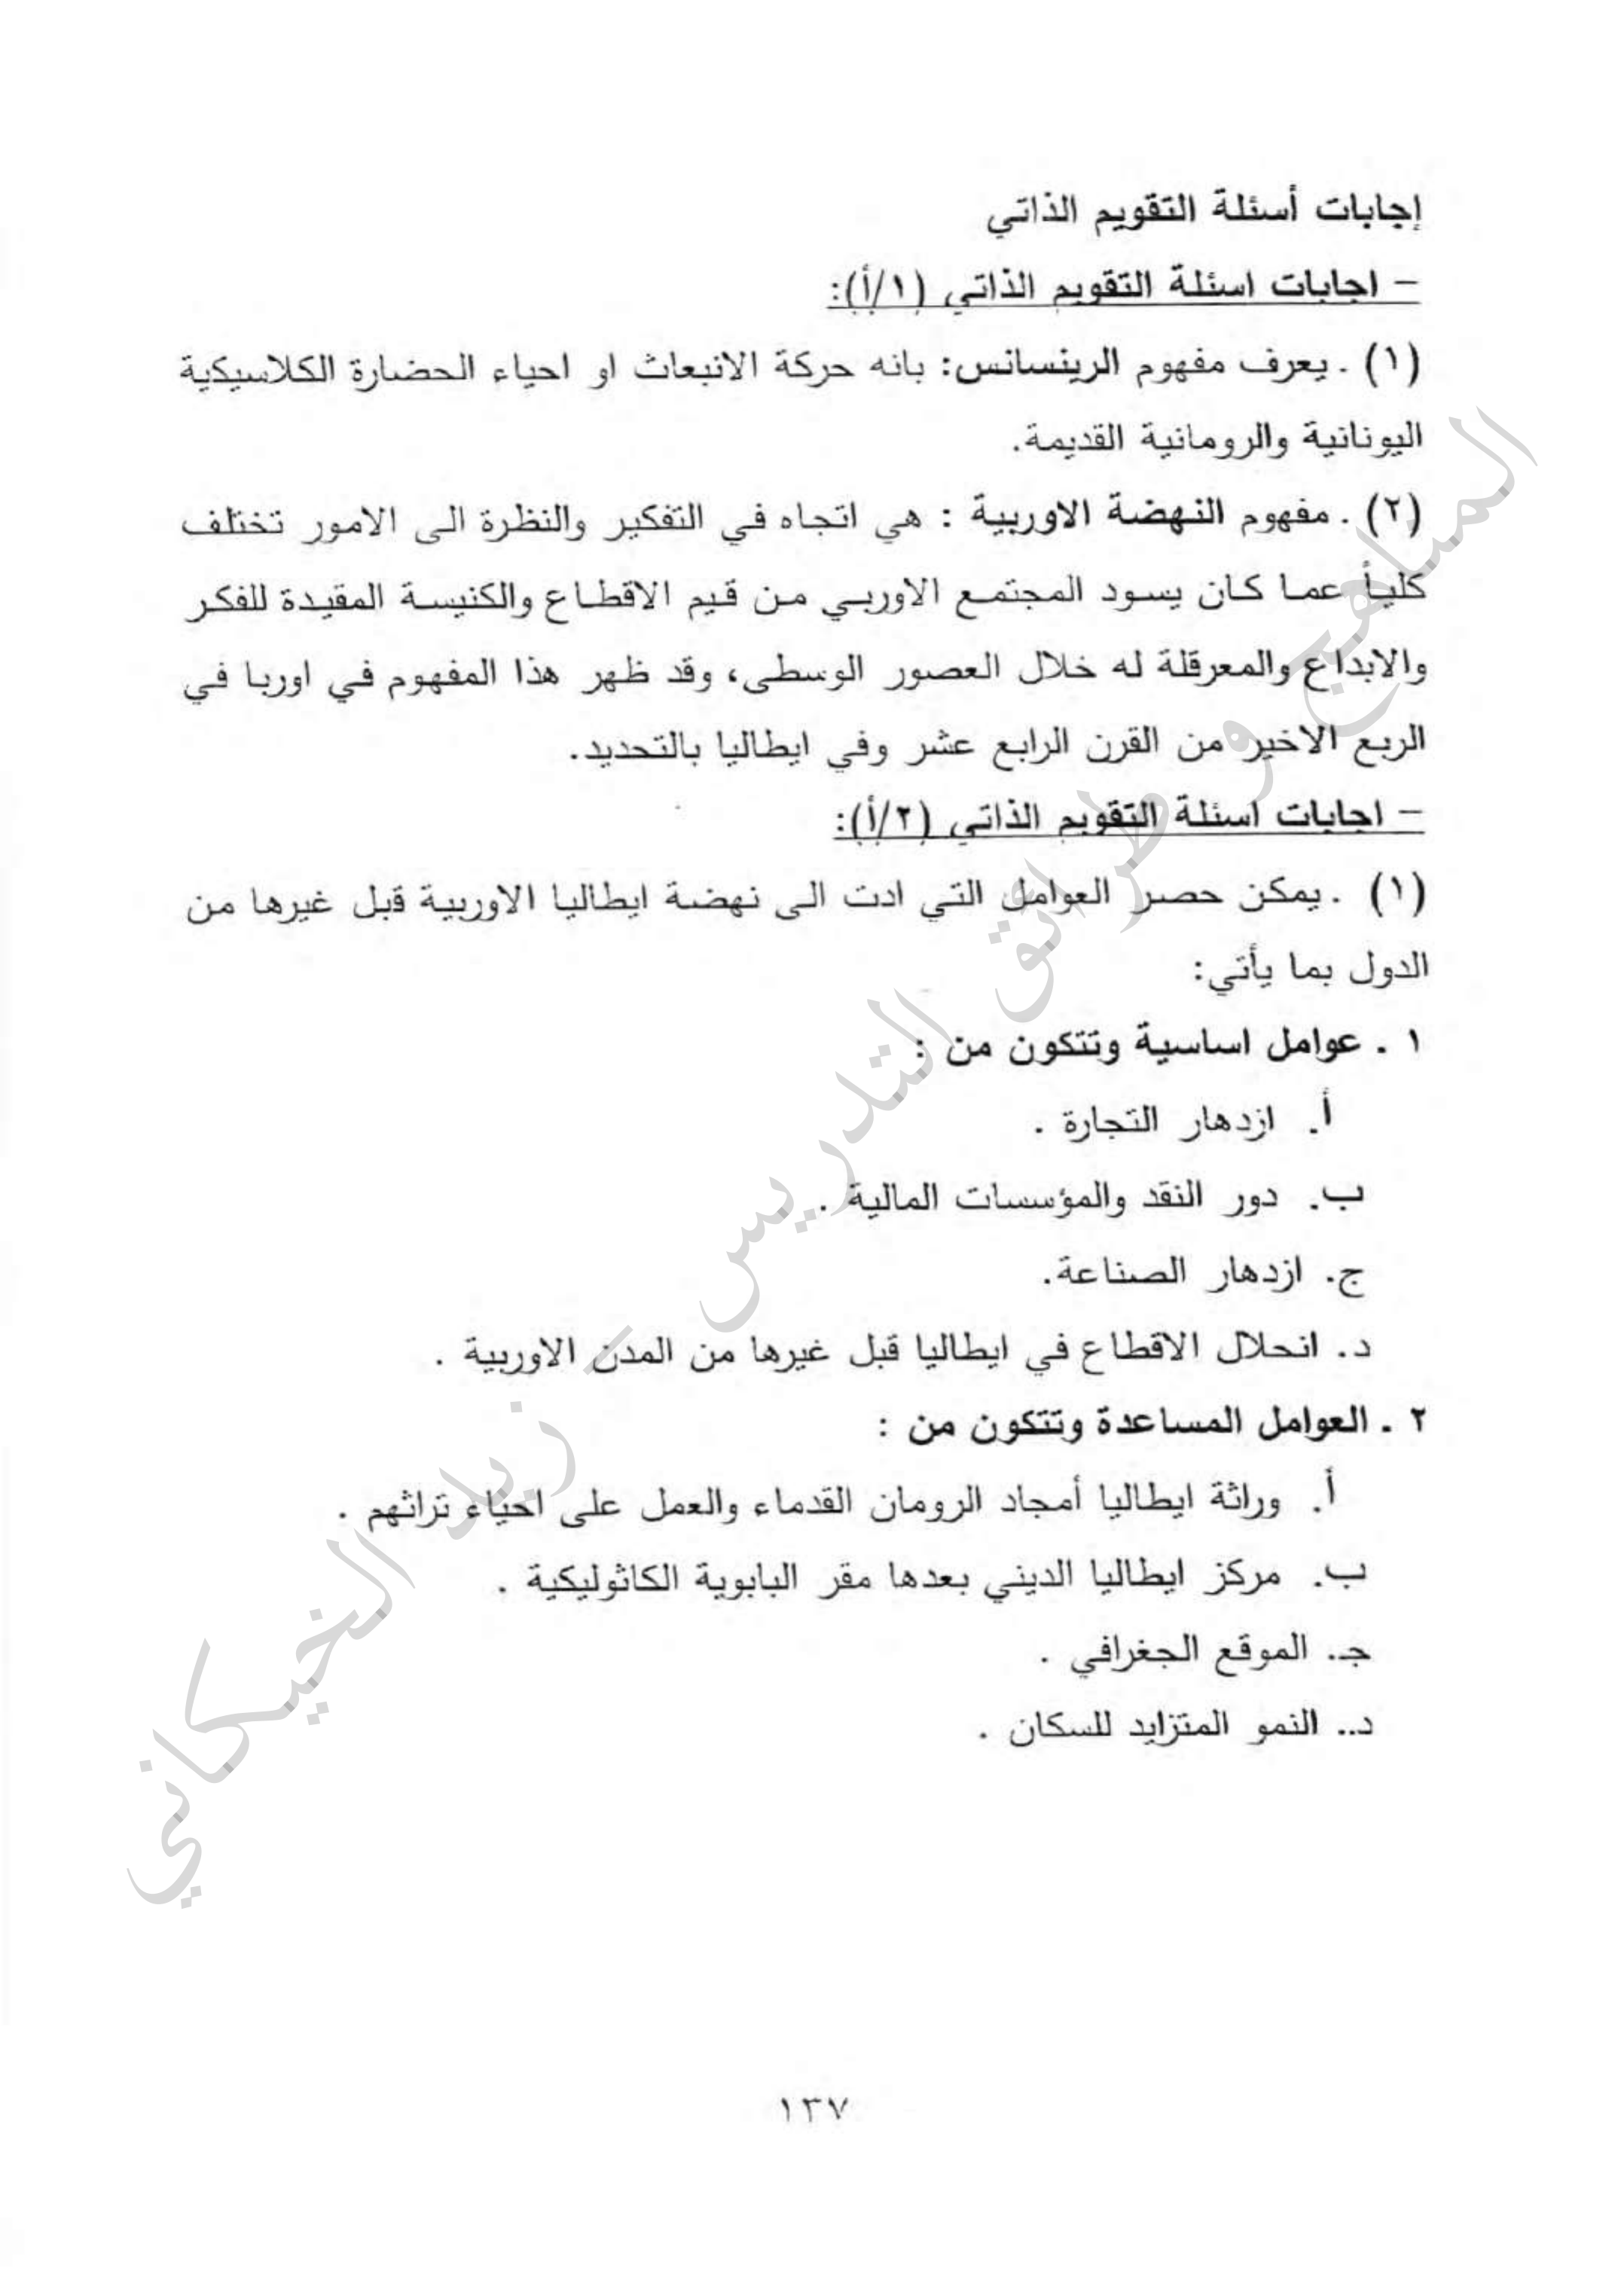 إجابات أسئلة التقويم الذاتي
– اجابات اسئلة التقويم الذاتي (١/أ):
(١) . يعرف مفهوم الرينسانس: بانه حركة الانبعاث او احياء الحضارة الكلاسيكية
اليونانية والرومانية القديمة.
(٢) . مفهوم النهضة الاوربية : هي اتجاه في التفكير والنظرة الى الامور تختلف
كلياً عما كان يسود المجتمع الاوربي من قيم الاقطاع والكنيسة المقيدة للفكر
والابداع والمعرقلة له خلال العصور الوسطى، وقد ظهر هذا المفهوم في اوربا في
الربع الاخير من القرن الرابع عشر وفي ايطاليا بالتحديد.
– اجابات اسئلة التقويم الذاتي (٢/أ):
(١) . يمكن حصر العوامل التي ادت الى نهضة ايطاليا الاوربية قبل غيرها من
الدول بما يأتي:
١ . عوامل اساسية وتتكون من :
أ. ازدهار التجارة .
ب. دور النقد والمؤسسات المالية .
ج. ازدهار الصناعة.
د. انحلال الاقطاع في ايطاليا قبل غيرها من المدن الاوربية .
٢ . العوامل المساعدة وتتكون من :
أ. وراثة ايطاليا أمجاد الرومان القدماء والعمل على احياء تراثهم .
ب. مركز ايطاليا الديني بعدها مقر البابوية الكاثوليكية .
جـ. الموقع الجغرافي .
د.. النمو المتزايد للسكان .
١٣٧
المناهج و طرائق التدريس – زيد الخيكاني